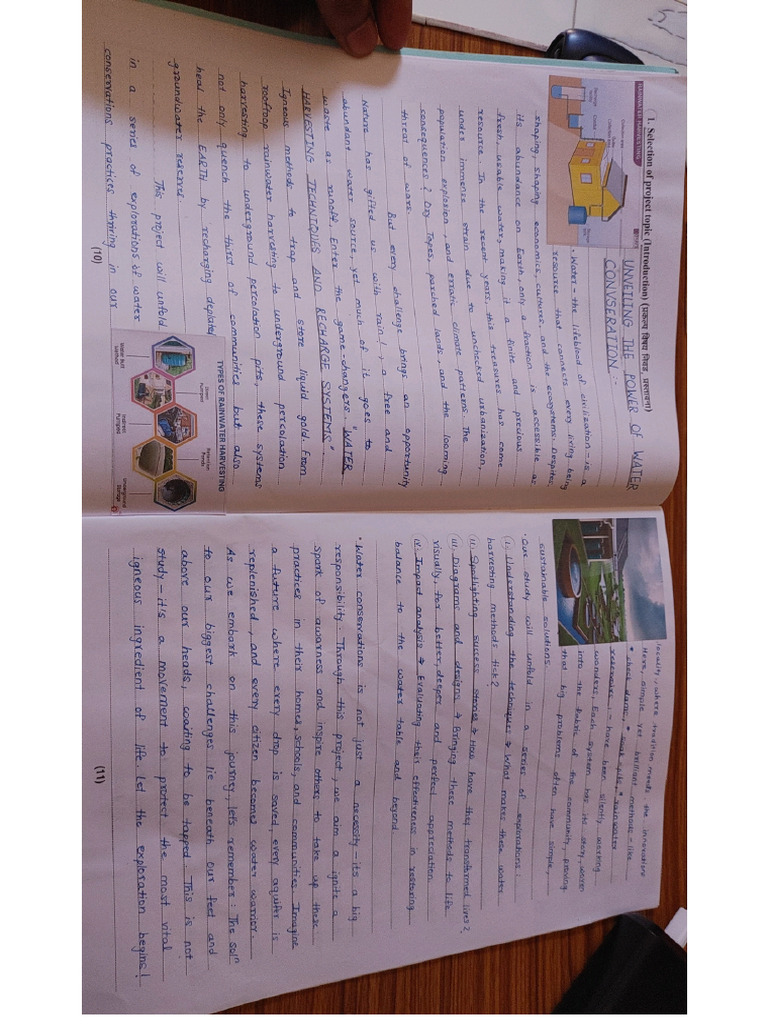 1. Selection of project topic (Introduction) (प्रकल्प विषय निवड, प्रस्तावना)
RAINWATER HARVESTING
UNVEILING THE POWER OF WATER
CONVSERATION :-
• Water - the lifeblood of civilization - is a
resource that connects every living being
shaping, shaping economics, cultures, and the ecosystems. Despites
its abundance on Earth, only a fraction is accessible as
fresh, usable water, making it a finite and precious
resource. In the recent years, this treasures has come
under immense strain due to unchecked urbanization,
population explosion, and erratic climate patterns. The
consequences? Dry Tapes, parched lands, and the looming
threat of wars.
But every challenge brings an opportunity
Nature has gifted us with rain! a free and
abundant water source, yet much of it goes to
waste as runoff. Enter the game-changers. "WATER
HARVESTING TECHNIQUES AND RECHARGE SYSTEMS."
Igneous methods to trap and store liquid gold. From
rooftoop rainwater harvesting to underground percolation
harvesting to underground percolation pits, these systems
not only quench the thirst of communities but also
heal the EARTH by recharging depleted
groundwater reserves
This project will unfold
in a series of explorations of water
conservations practices thriving in our
TYPES OF RAINWATER HARVESTING
Water Butt
Method
Direct
Pumped
Indirect
Pumped
Retention
Ponds
Underground
Storage
(10)
locality, where tradition meets the innovations
Here, simple yet brilliant methods - like
• check dams, • soak pits • rainwater
reservoirs - have been silently working
wonders. Each system has its story, woven
into the fabric of the community, proving
that big problems often have simple
sustainable solutions.
• Our study will unfold in a series of explorations!
(i) Understanding the techniques → What makes these water
harvesting methods tick?
(ii) Spotlighting success stories → How have they transformed lives?
(iii) Diagrams and designs → Bringing these methods to life
visually, for better, deeper and perfect appreciation
(iv) Impact analysis → Evaluating their effectiveness in restoring
balance to the water table and beyond.
• Water conservations is not just a necessity - its a big
responsibility. Through this project, we aim a ignite a
spark of awarness and inspire others to take up these
practices in their homes, schools, and communities. Imagine
a future where every drop is saved, every aquifer is
replenished, and every citizen becomes water warrior.
As we embark on this journey, lets remember: The solⁿ
to our biggest challenges lie beneath our feet and
above our heads, waiting to be tapped. This is not
study - it's a movement to protect the most vital
igneous ingredient of life. Let the exploration begins!
(11)